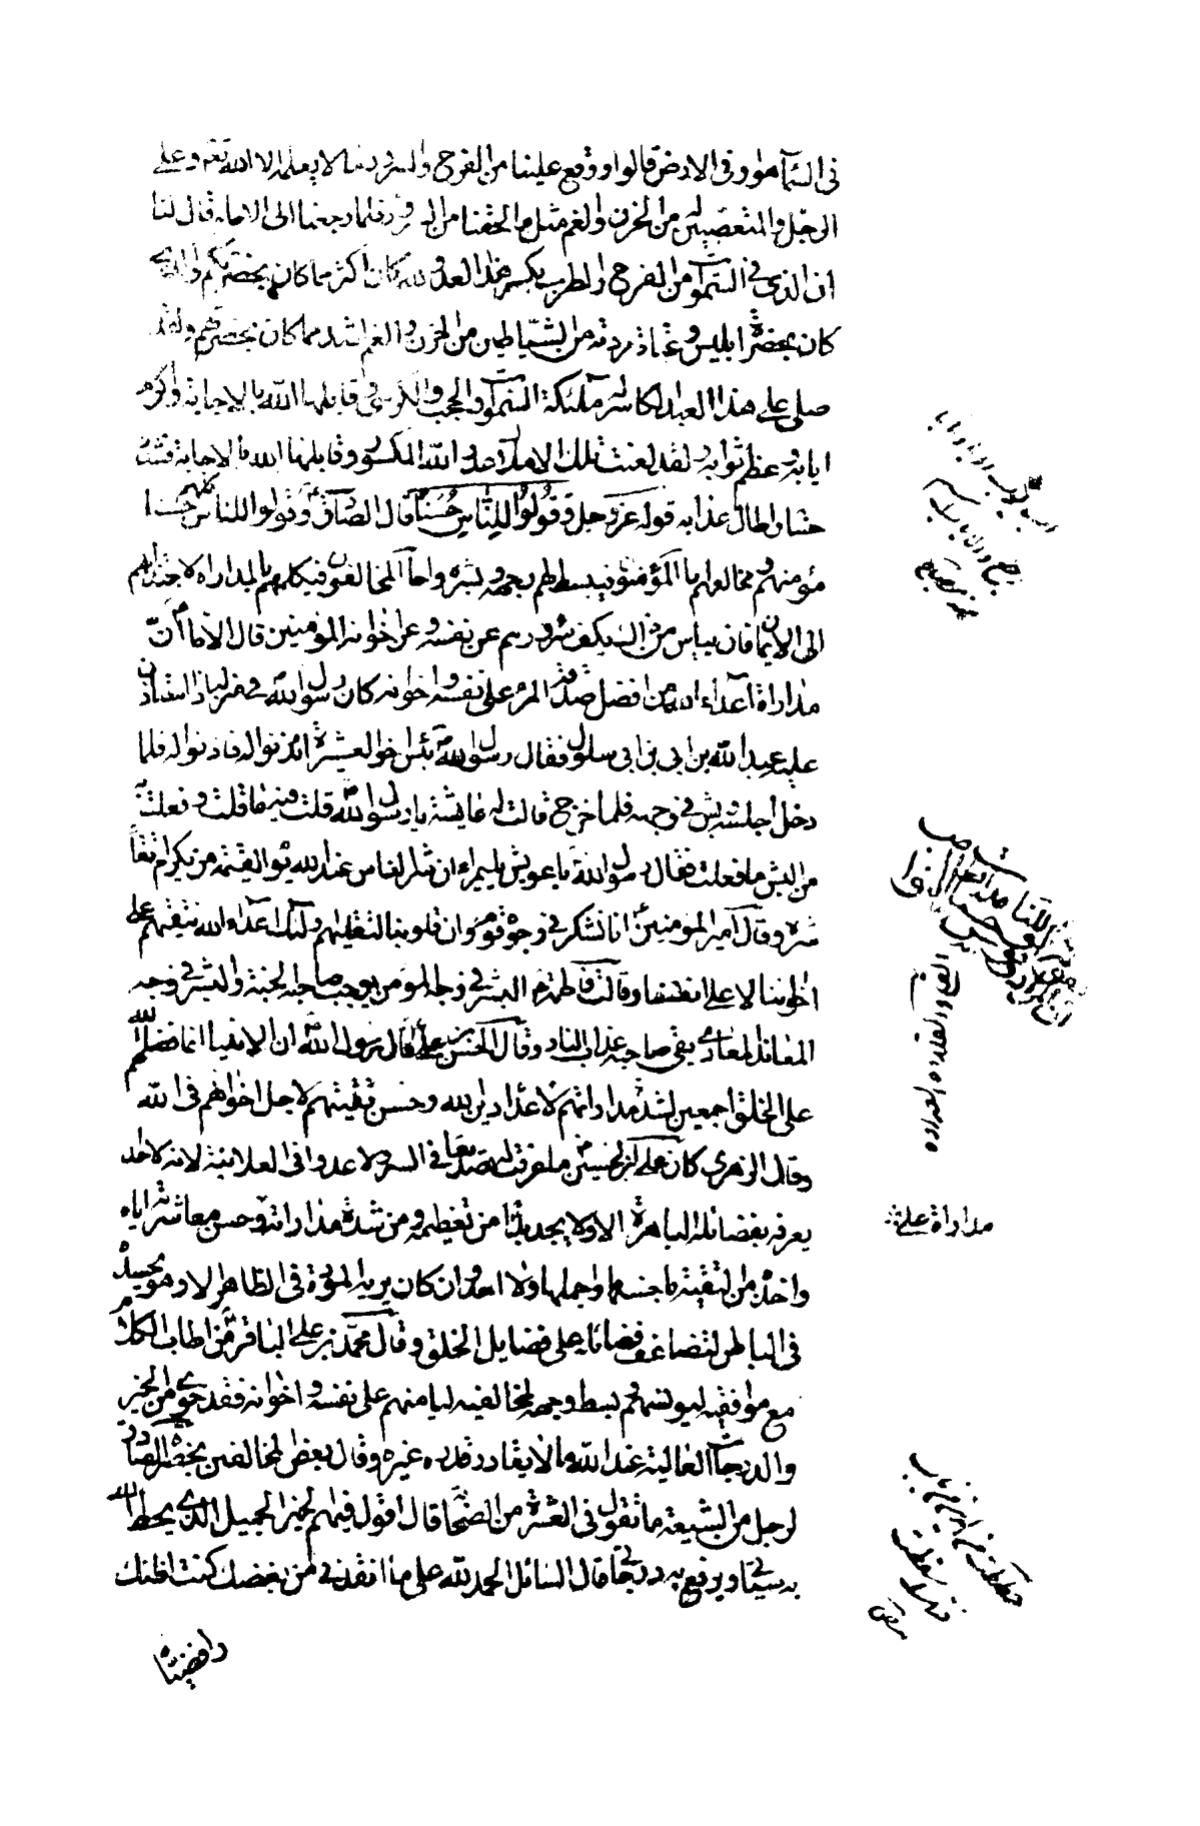 فى السمآء ولا فى الارض قالوا ووقع علينا من الفرح والسرور ما لا يعلمه الا الله تعالى وعلى
الرجل والمتعصبين له من الحزن والغم مثل ما لحقنا من السرور فلما رجعنا الى الامام قال لنا
ان الذى فى السموات من الفرح والطرب بكسر هذا العدو لله كان اكثر مما كان بحضرتكم والذى
كان بحضرة ابليس وعتاة مردته من الشياطين من الحزن والغم اشد مما كان بحضرتهم ولقد
صلى على هذا العبد الكاسر له ملئكة السموات والحجب والكرسى وقابلها الله بالاجابة واكرم
ايابه وعظم ثوابه ولقد لعنت تلك الاملاك عدو الله المكسور وقابلها الله بالاجابة فشدد
حسابه واطال عذابه قوله عز وجل وقولوا للناس حسنا قال الصادق ع وقولوا للناس كلهم حسنا
مؤمنهم ومخالفهم اما المؤمنون فيبسط لهم وجهه وبشره واما المخالفون فيكلمهم بالمداراة لاجتذابهم
الى الايمان فان ييأس من ذلك يكف شرورهم عن نفسه وعن اخوانه المؤمنين قال الامام ان
مداراة اعداء الله من افضل صدقة المرء على نفسه واخوانه كان رسول الله فى منزله اذ استاذن
عليه عبد الله بن ابى بن ابى سلول فقال رسول الله بئس اخو العشيرة ائذنوا له فاذنوا له فلما
دخل اجلسه وبشر فى وجهه فلما خرج قالت له عايشة يا رسول الله قلت فيه ما قلت وفعلت به
من البشر ما فعلت فقال رسول الله يا عويش يا حميراء ان شر الناس عند الله يوم القيمة من يكرم اتقاء
شره وقال امير المؤمنين انا لنشكر فى وجوه قوم وان قلوبنا لتقليهم اولئك اعداء الله نتقيهم على
اخواننا لا على انفسنا وقالت فاطمة البشر فى وجه المؤمن يوجب لصاحبه الجنة والبشر فى وجه
المعاند المعادى يقى صاحبه عذاب النار وقال الحسن بن على قال رسول الله ان الانبياء انما فضلهم الله
على الخلق اجمعين لشدة مداراتهم لاعداء دين الله وحسن تقيتهم لاجل اخوانهم فى الله
وقال الزهرى كان على بن الحسين ما عرفت له صديقا فى السر ولا عدوا فى العلانية لانه لا احد
يعرفه بفضائله الباهرة الا ولا يجد بدا من تعظيمه ومن شدة مداراته وحسن معاشرته اياه
واخذه من التقية باحسنها واجملها ولا احد وان كان يريه المودة فى الظاهر الا وهو يحسده
فى الباطن لتضاعف فضائله على فضايل الخلق وقال محمد بن على الباقر من اطاب الكلام
مع موافقيه ليونسهم وبسط وجهه لمخالفيه ليامنهم على نفسه واخوانه فقد حوى من الخير
والدرجات العالية عند الله ما لا يقادر قدره غيره وقال بعض المخالفين بحضرة الصادق
لرجل من الشيعة ما تقول فى العشرة من الصحابة قال اقول فيهم الخير الجميل الذى يحط الله
به سيئاتى ويرفع به درجاتى قال السائل الحمد لله على ما انقذنى من بغضك كنت اظنك
رافضيا
مداراة على